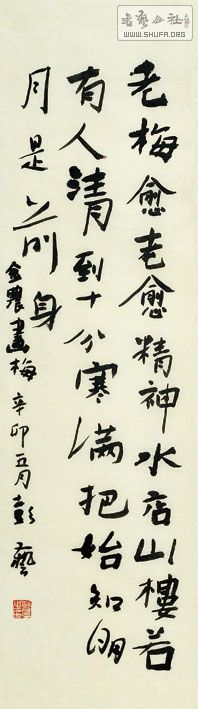 書藝公社
WWW.SHUFA.ORG
老梅愈老愈精神水店山樓若
有人清到十分寒滿把始知明
月是前身
金農畫梅 辛卯五月彭藝